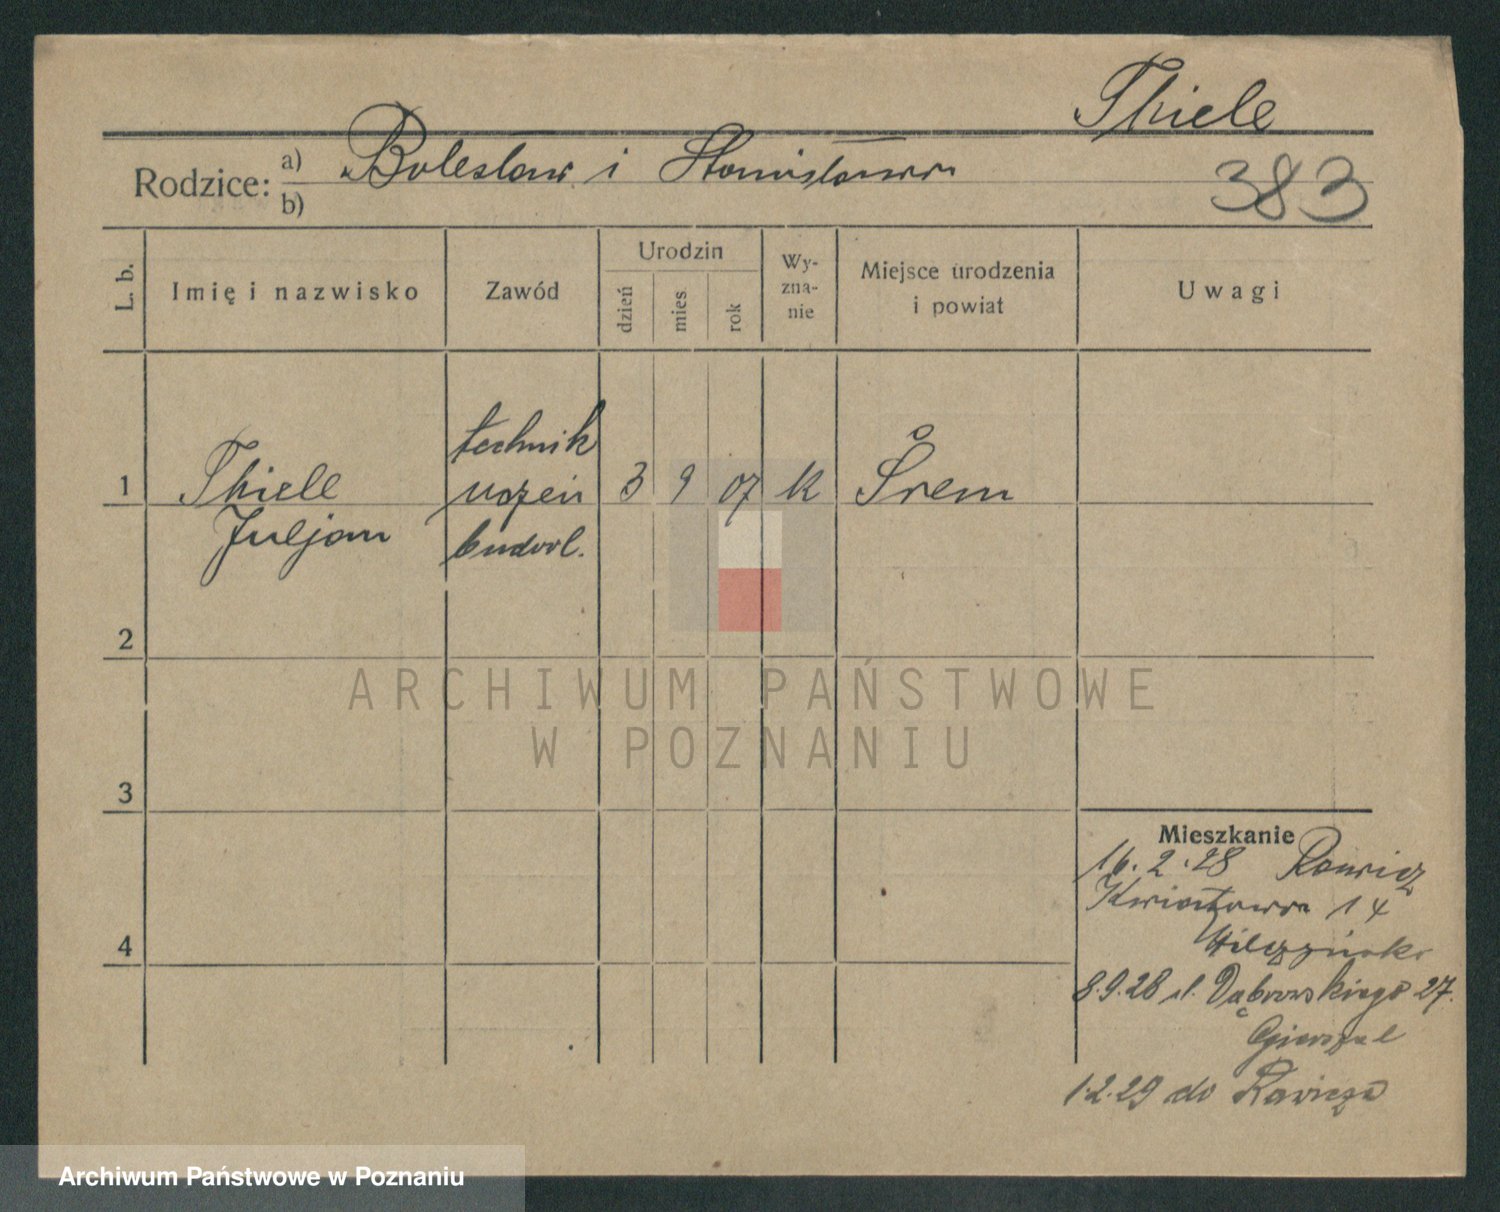 Thiele
Rodzice: a) Bolesław i Stanisława
b)
383
L. b. Imię i nazwisko Zawód Urodzin dzień mies rok Wy-zna-nie Miejsce urodzenia i powiat Uwagi
technik
1 Thiele uczeń 3 9 07 k Śrem
Juljan budowl.
2
ARCHIWUM PAŃSTWOWE
W POZNANIU
3
Mieszkanie
16.2.28 Rawicz
Kwiatowa 14
4
8.9.28 ul. Dąbrowskiego 27.
1.2.29 do Rawicza
Archiwum Państwowe w Poznaniu